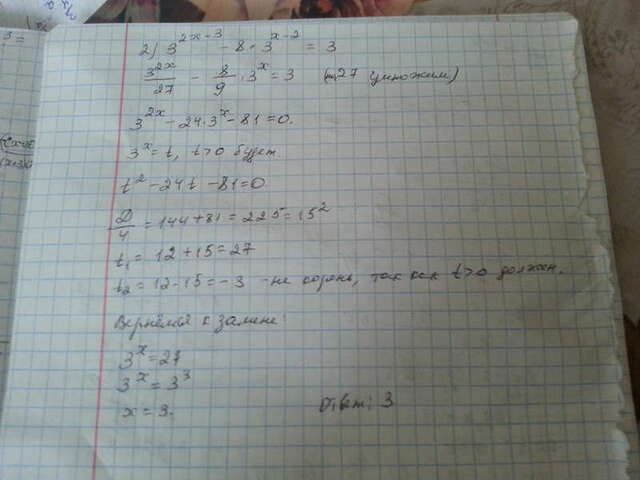 3 =
2) 3^{2x-3} - 8 · 3^{x-2} = 3
3^{2x}/27 - 8/9 · 3^x = 3 (на 27 умножим)
3^{2x} - 24 · 3^x - 81 = 0.
3^x = t, t>0 будет
t^2 - 24t - 81 = 0
D/4 = 144 + 81 = 225 = 15^2
t_1 = 12 + 15 = 27
t_2 = 12 - 15 = -3 - не корень, так как t>0 должен.
Вернёмся к замене:
3^x = 27
3^x = 3^3
x = 3.
Ответ: 3